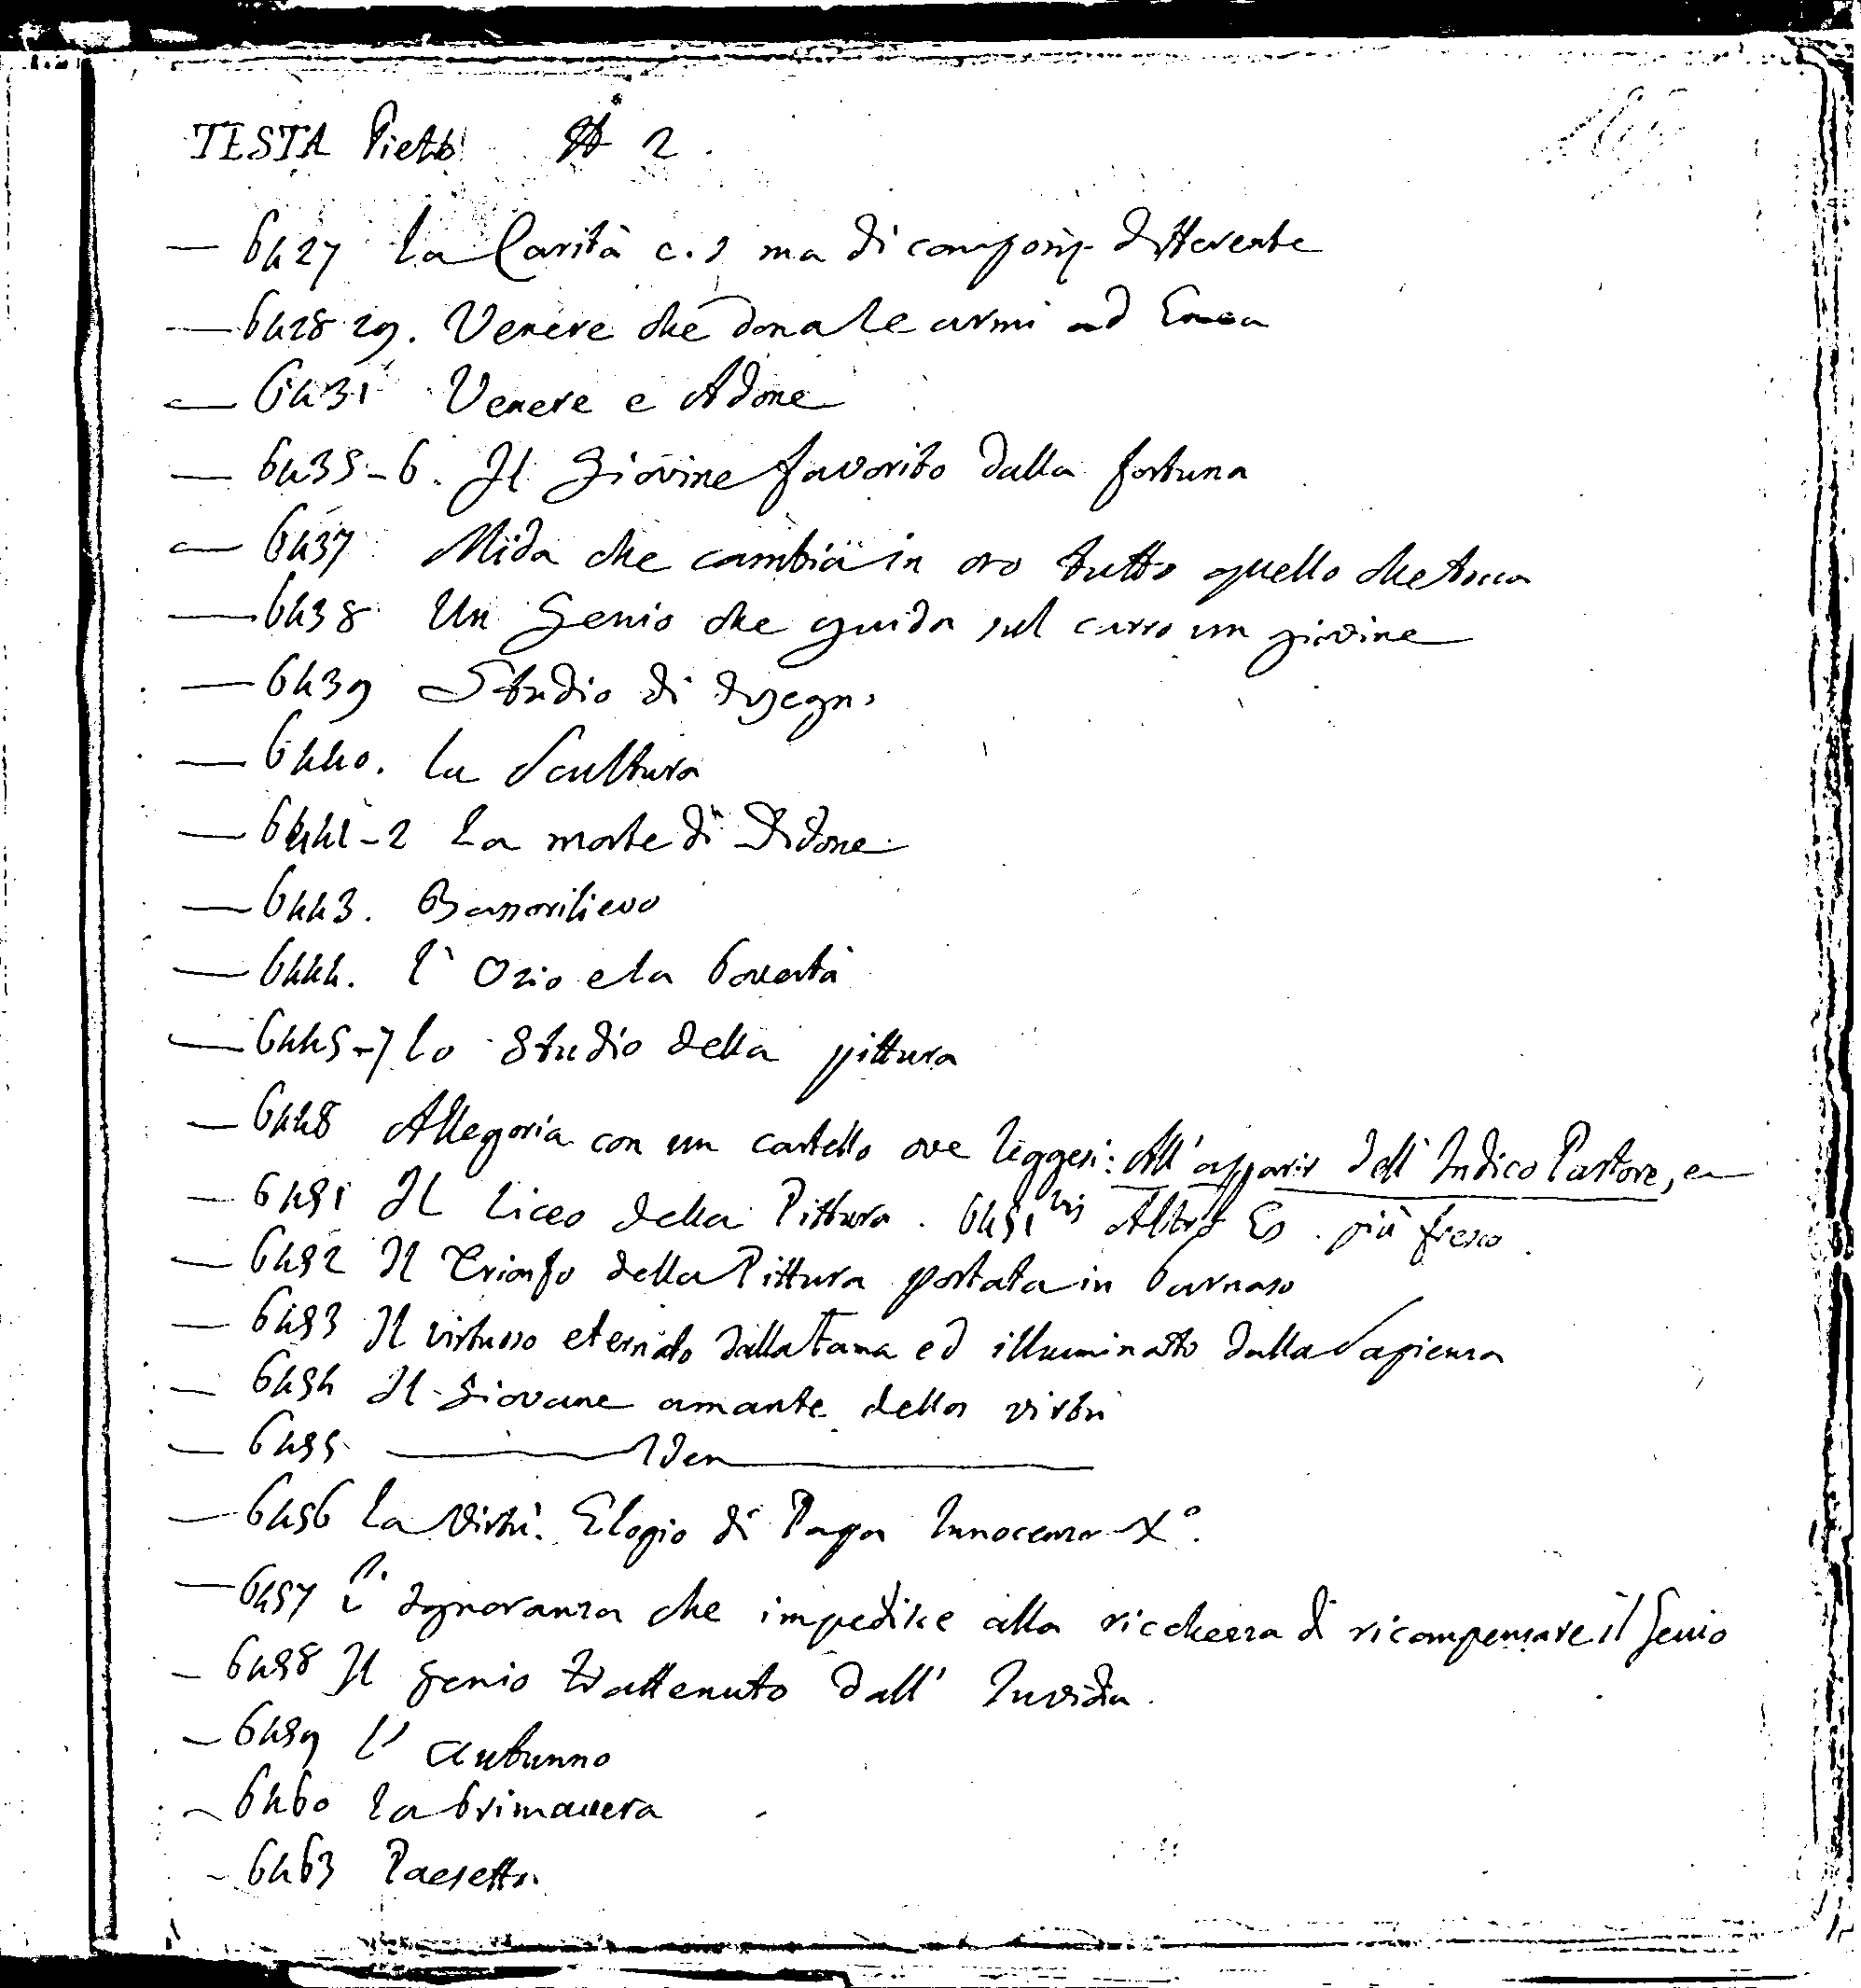 TESTA Pietro 2.
— 6427 La Carità c.s ma di composiz. differente
— 6428 29. Venere che dona le armi ad Enea
— 6431 Venere e Adone
— 6435-6. Il Giovine favorito dalla fortuna
— 6437 Mida che cambia in oro tutto quello che tocca
— 6438 Un Genio che guida sul carro un giovine
— 6439 Studio di disegno
— 6440. La Scultura
— 6441-2 La morte di Didone
— 6443. Bassorilievo
— 6444. L' Ozio e la Povertà
— 6445-7 Lo Studio della pittura
— 6448 Allegoria con un cartello ove leggesi: All'apparir dell'Indico Pastore,
— 6451 Il Liceo della Pittura. 6451 bis Altro Es. più fresco
— 6452 Il Trionfo della Pittura portata in Parnaso
— 6453 Il virtuoso eternato dalla Fama ed illuminato dalla Sapienza
— 6454 Il Giovane amante della virtù
— 6455 — Idem —
— 6456 La Virtù. Elogio di Papa Innocenzo X°.
— 6457 L' Ignoranza che impedisce alla ricchezza di ricompensare il Genio
— 6458 Il genio trattenuto dall' Invidia.
— 6459 L' autunno
— 6460 La Primavera
— 6463 Paesetto.